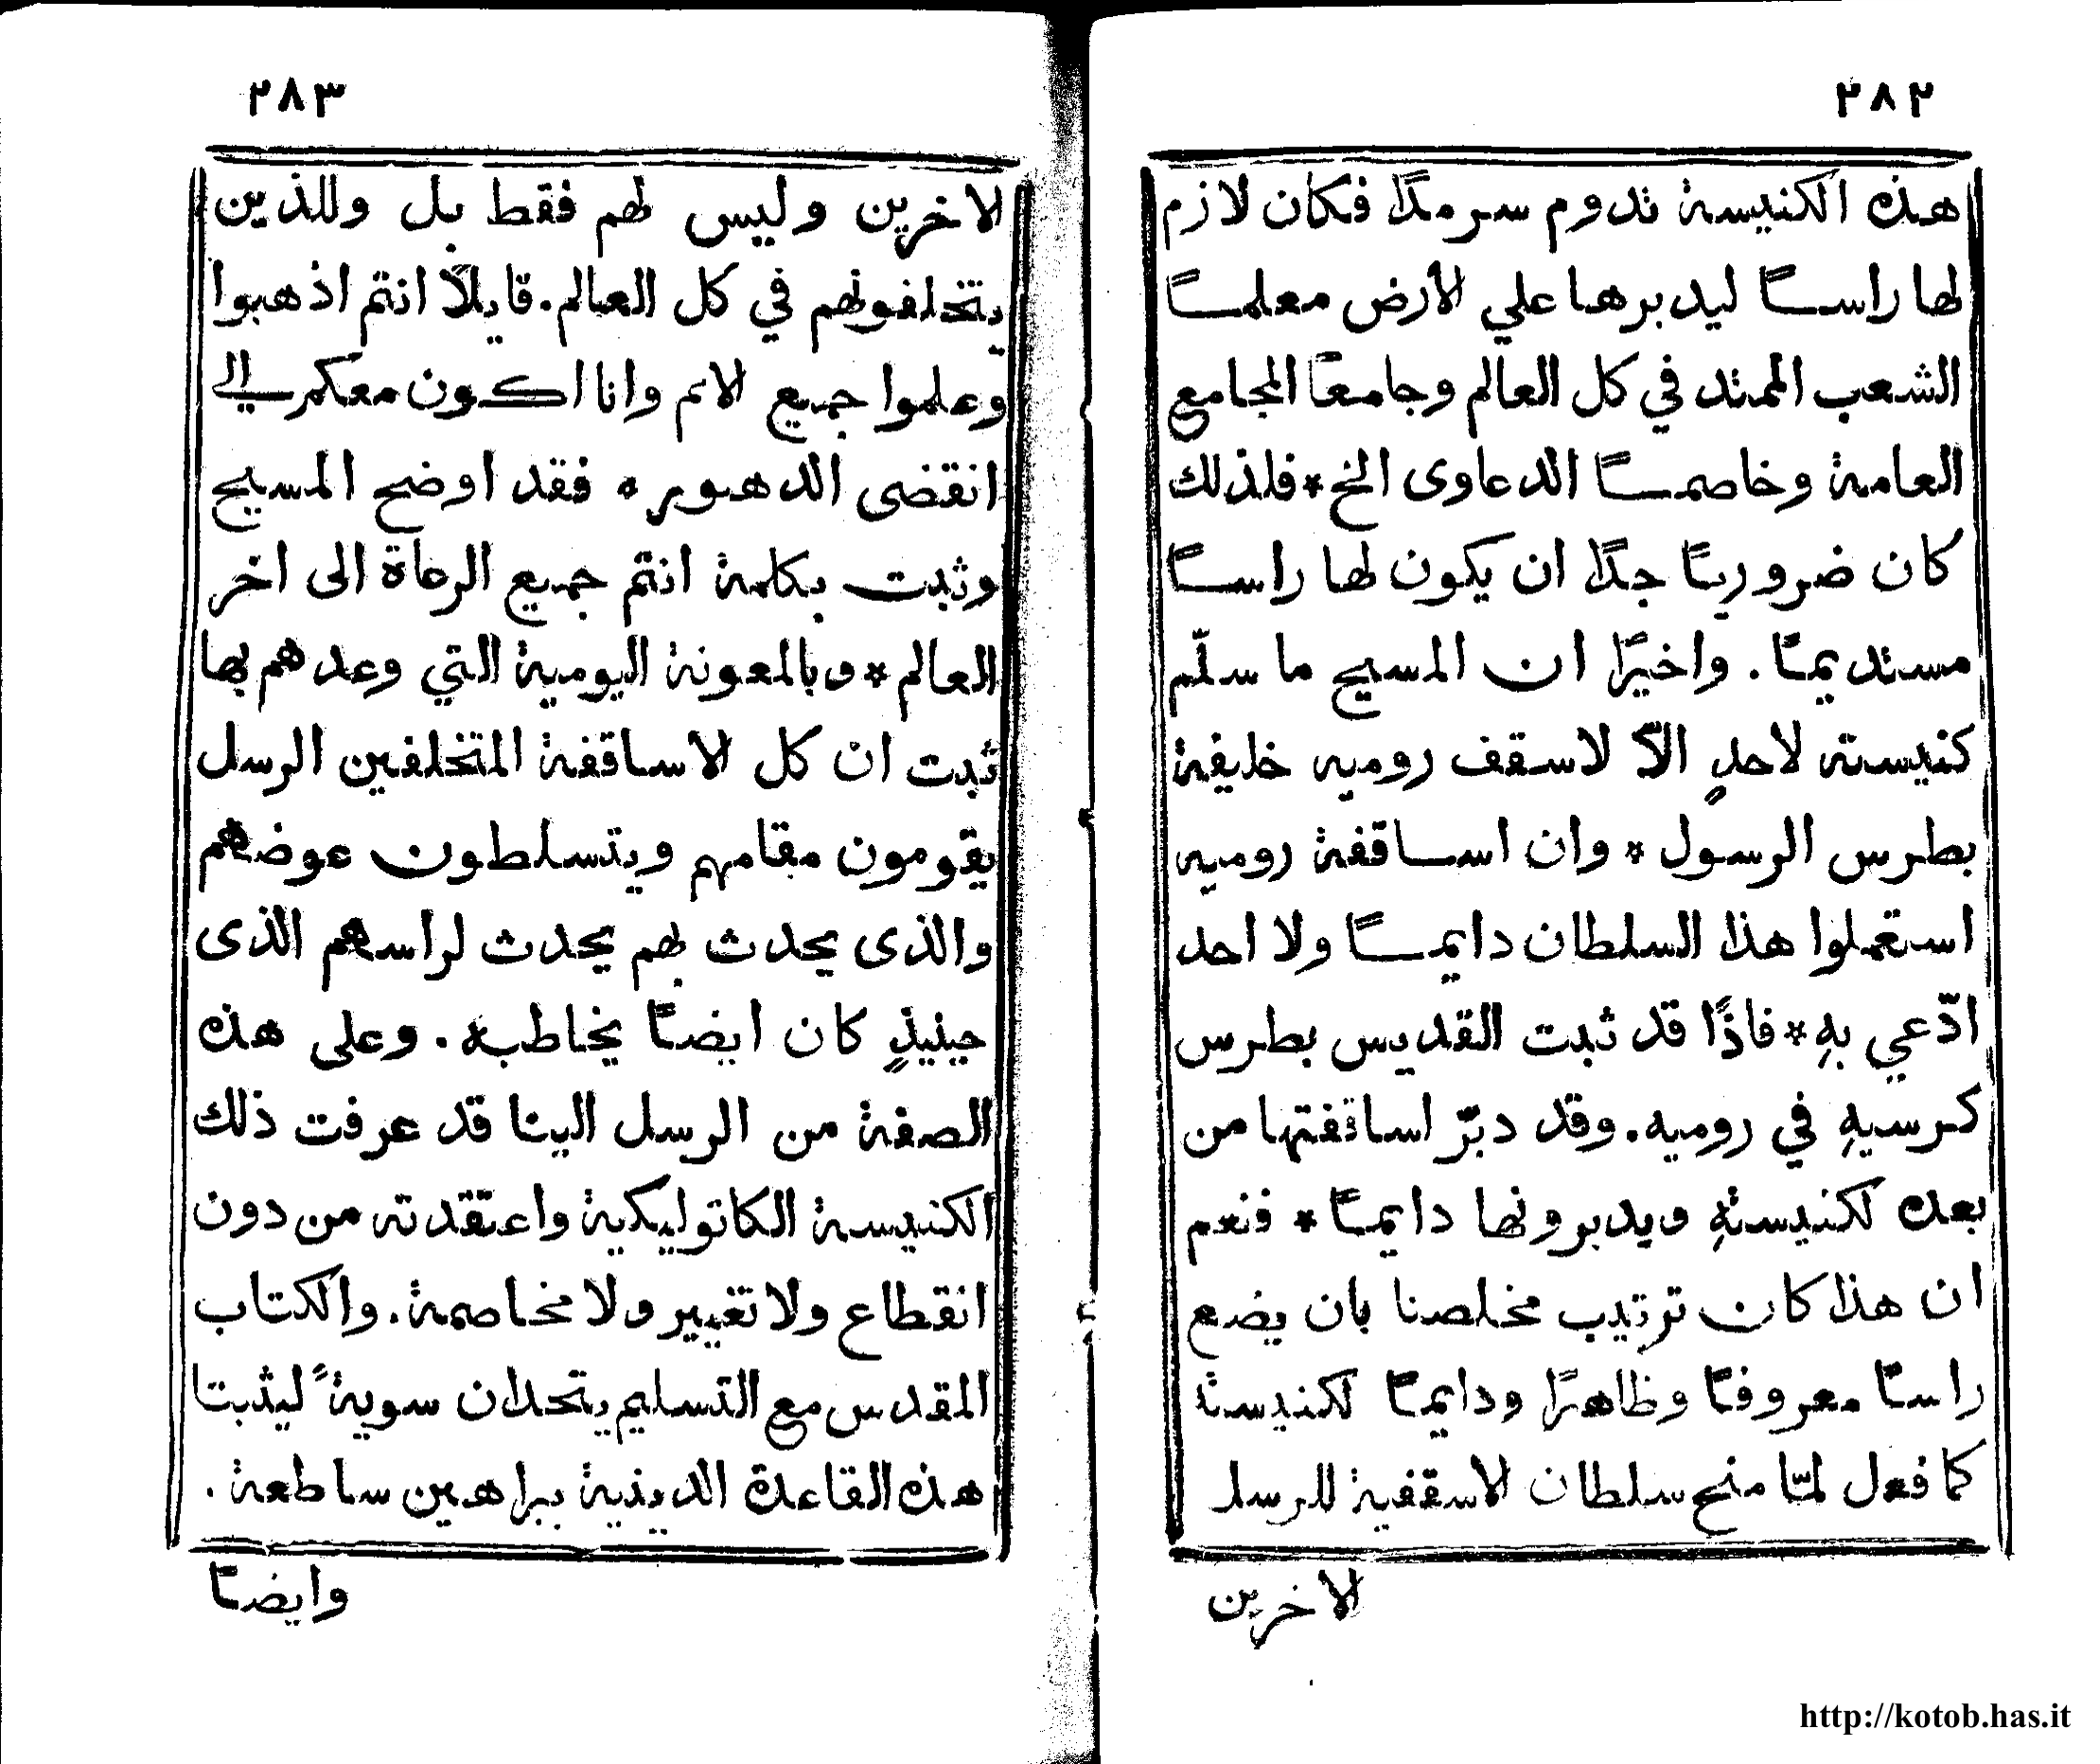 ٢٨٢
هذه الكنيسة تدوم سرمدًا فكان لازم
لها راسًا ليدبرها علي الأرض معلمًا
الشعب الممتد في كل العالم وجامعًا المجامع
العامة وخاصمًا الدعاوى الخ * فلذلك
كان ضروريًا جدًا ان يكون لها راسًا
مستديمًا . واخيرًا ان المسيح ما سلّم
كنيسته لاحدٍ الّا لاسقف روميه خليفة
بطرس الرسول * وان اساقفة روميه
استعملوا هذا السلطان دايمًا ولا احد
ادّعي بهِ * فاذًا قد ثبت القديس بطرس
كرسيهِ في روميه . وقد دبّر اساقفتها من
بعده لكنيستهِ ويدبرونها دايمًا * فنعم
ان هذا كان ترتيب مخلصنا بان يضع
راسًا معروفًا وظاهرًا ودايمًا لكنيسته
كما فعل لمّا منح سلطان الاسقفية للرسل
الاخرين
٢٨٣
الاخرين وليس لهم فقط بل وللذين
يتخلفونهم في كل العالم . قايلًا انتم اذهبوا
وعلموا جميع الامم وانا اكون معكم الي
انقضى الدهور ه فقد اوضح المسيح
وثبت بكلمة انتم جميع الرعاة الى اخر
العالم * وبالمعونة اليومية التي وعدهم بها
ثبت ان كل الاساقفة المتخلفين الرسل
يقومون مقامهم ويتسلطون عوضهم
والذى يحدث لهم يحدث لراسهم الذى
حينيذٍ كان ايضًا يخاطبه . وعلى هذه
الصفة من الرسل الينا قد عرفت ذلك
الكنيسة الكاتوليكية واعتقدته من دون
انقطاع ولا تغيير ولا مخاصمة . والكتاب
المقدس مع التسليم يتحدان سويةً ليثبتا
هذه القاعدة الدينية ببراهين ساطعة .
وايضًا
http://kotob.has.it